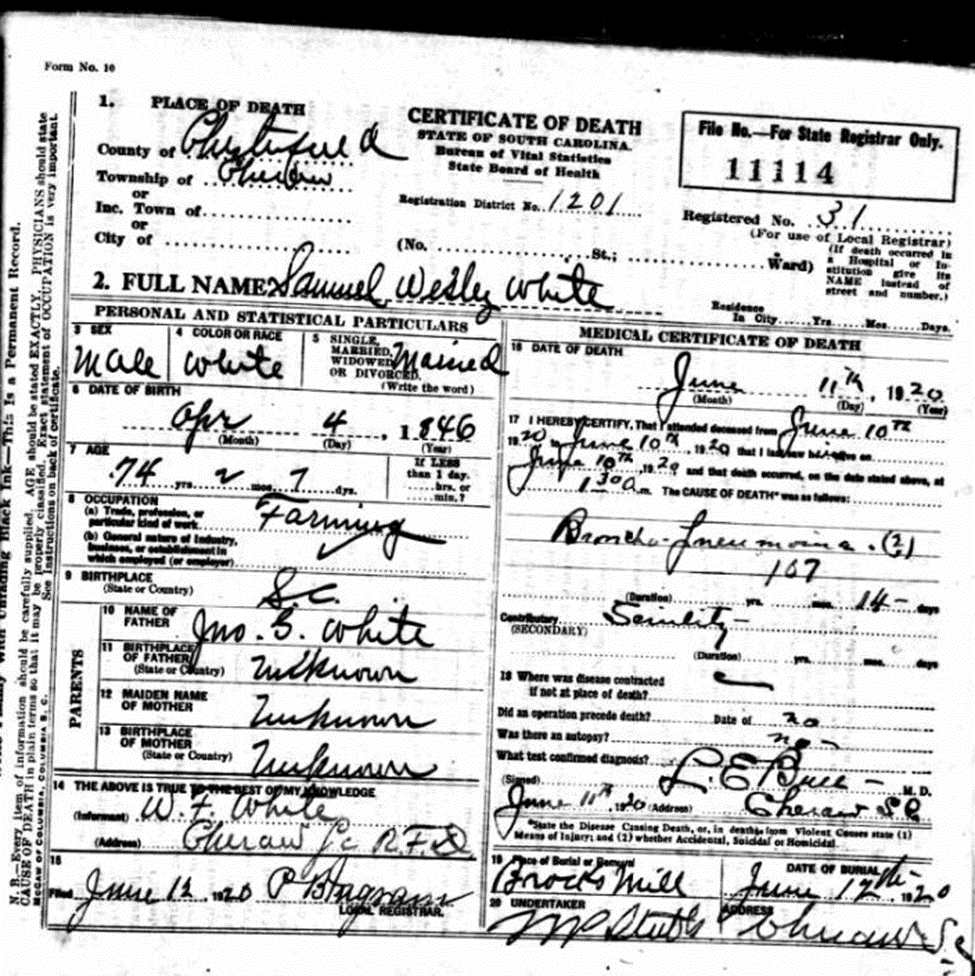 Form No. 10
1. PLACE OF DEATH
County of Chesterfield
Township of Cheraw
or
Inc. Town of
or
City of
CERTIFICATE OF DEATH
STATE OF SOUTH CAROLINA.
Bureau of Vital Statistics
State Board of Health
Registration District No. 1201
(No. St.; Ward)
File No.—For State Registrar Only.
11114
Registered No. 31
(For use of Local Registrar)
(If death occurred in
a Hospital or In-
stitution give its
NAME instead of
street and number.)
2. FULL NAME Samuel Wesley White
Residence
In City Yrs. Mos. Days.
PERSONAL AND STATISTICAL PARTICULARS
3 SEX
Male
4 COLOR OR RACE
White
5 SINGLE,
MARRIED,
WIDOWED
OR DIVORCED.
(Write the word)
Married
6 DATE OF BIRTH
Apr 4, 1846
(Month) (Day) (Year)
7 AGE
74 yrs. 2 mos. 7 dys.
If LESS
than 1 day.
hrs. or
min.?
8 OCCUPATION
(a) Trade, profession, or
particular kind of work
Farming
(b) General nature of Industry,
business, or establishment in
which employed (or employer)
9 BIRTHPLACE
(State or Country)
S.C.
PARENTS
10 NAME OF
FATHER
Jno. B. White
11 BIRTHPLACE
OF FATHER
(State or Country)
Unknown
12 MAIDEN NAME
OF MOTHER
Unknown
13 BIRTHPLACE
OF MOTHER
(State or Country)
Unknown
14 THE ABOVE IS TRUE TO THE BEST OF MY KNOWLEDGE
(Informant) W. F. White
(Address) Cheraw Sc R.F.D
15
Filed June 12 1920 P Bingram
LOCAL REGISTRAR.
MEDICAL CERTIFICATE OF DEATH
16 DATE OF DEATH
June 11th, 1920
(Month) (Day) (Year)
17 I HEREBY CERTIFY, That I attended deceased from June 10th
1920 to June 10th, 1920 that I last saw h alive on
June 10th, 1920 and that death occurred, on the date stated above, at
1 30 a m. The CAUSE OF DEATH* was as follows:
Broncho-Pneumoina
107
(Duration) yrs. mos. 14 days
Contributory Senility
(SECONDARY)
(Duration) yrs. mos. days
18 Where was disease contracted
if not at place of death?
Did an operation precede death? Date of no
Was there an autopsy? no
What test confirmed diagnosis?
(Signed) M. D.
June 11th, 1920 (Address) Cheraw SC
*State the Disease Causing Death, or, in deaths from Violent Causes state (1)
Means of Injury; and (2) whether Accidental, Suicidal or Homicidal.
19 Place of Burial or Removal
Brocks Mill
DATE OF BURIAL
June 12th 1920
20 UNDERTAKER
ADDRESS
Cheraw S.C.
N.B.—Every item of information should be carefully supplied. AGE should be stated EXACTLY. PHYSICIANS should state
CAUSE OF DEATH in plain terms so that it may be properly classified. Exact statement of OCCUPATION is very important.
See instructions on back of certificate.
MCCAW OF COLUMBIA, COLUMBIA S. C.
with Unfading Black Ink—This Is a Permanent Record.